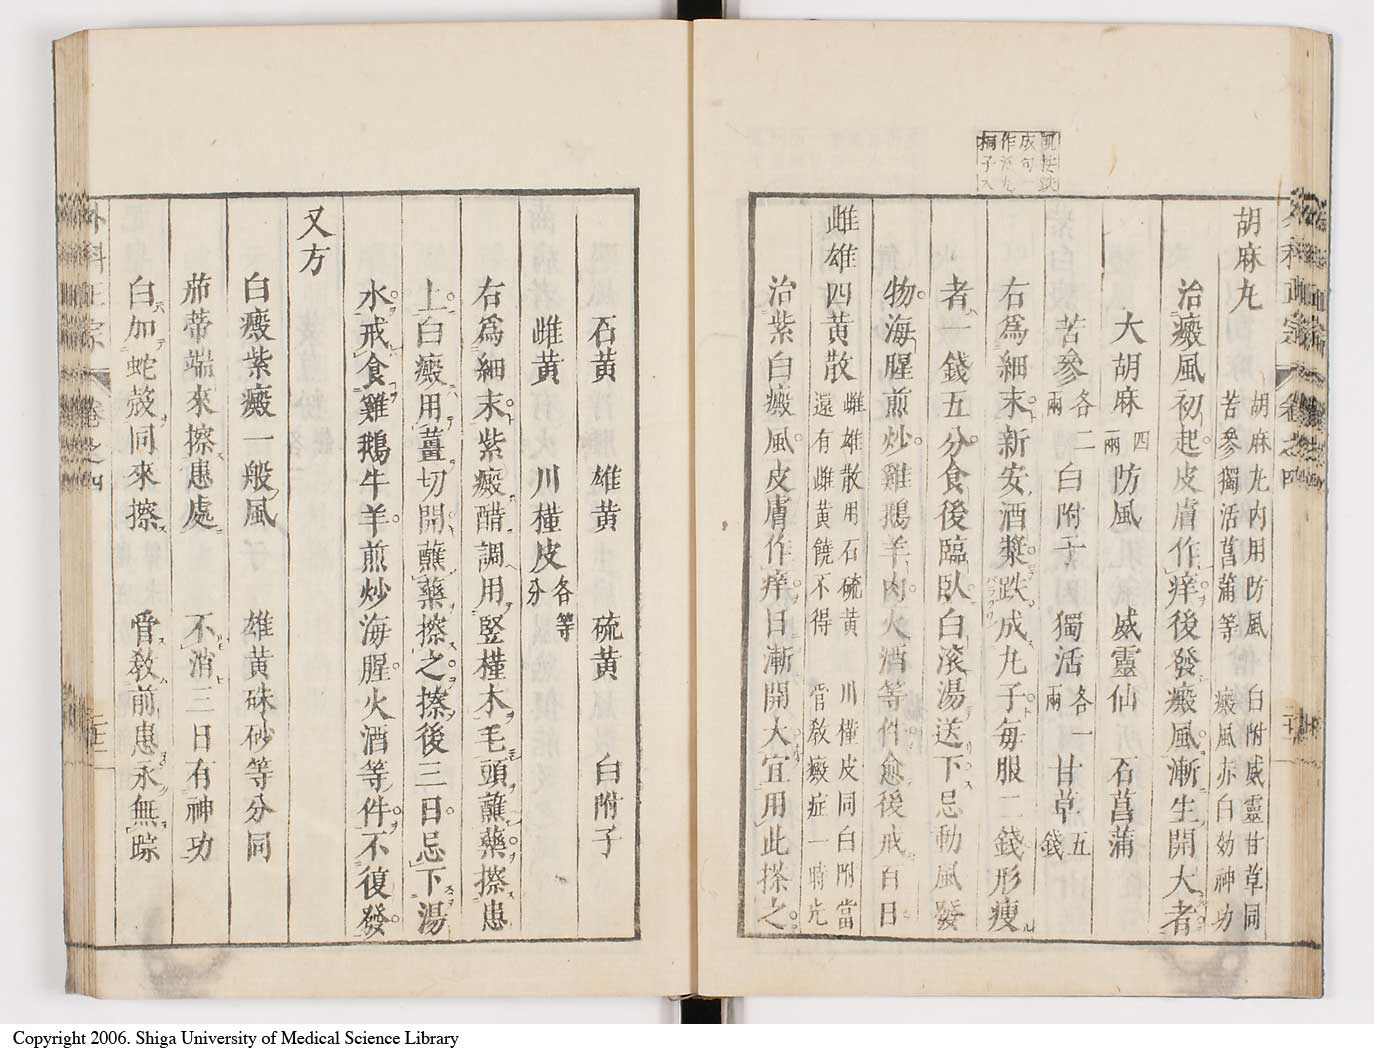 胡麻丸
胡麻丸内用防風 白附威靈甘草同
苦參獨活菖蒲等 癜風赤白効神功
治癜風初起皮膚作痒後發癜風漸生開大者
大胡麻四兩 防風 威靈仙 石菖蒲
苦參各二兩 白附子 獨活各一兩 甘草五錢
右爲細末新安酒漿跌成丸子毎服二錢形瘦
者一錢五分食後臨臥白滚湯送下忌動風發
物海腥煎炒雞鵝羊肉火酒等件愈後戒百日
雌雄四黄散
雌雄散用石硫黄 川槿皮同白附當
還有雌黄饒不得 管教癜症一時光
治紫白癜風皮膚作痒日漸開大宜用此搽之
石黄 雄黄 硫黄 白附子
雌黄 川槿皮各等分
右爲細末紫癜醋調用竪槿木毛頭蘸藥擦患
上白癜用薑切開蘸藥擦之擦後三日忌下湯
水戒食雞鵝牛羊煎炒海腥火酒等件不復發
又方
白癜紫癜一般風 雄黄硃砂等分同
茄蒂端來擦患處 不消三日有神功
白加蛇殼同來擦 管教前患永無踪
外科正宗 卷之四
Copyright 2006. Shiga University of Medical Science Library